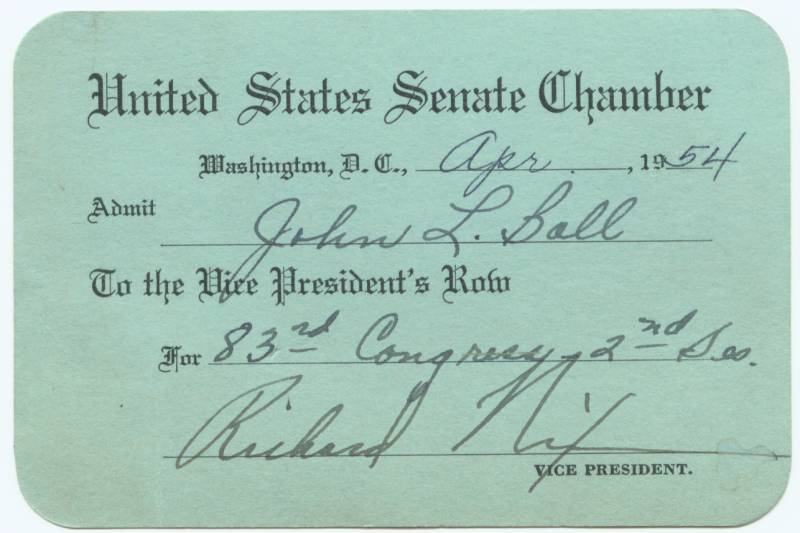 United States Senate Chamber
Washington, D. C., Apr. , 1954
Admit John L. Ball
To the Vice President's Row
For 83rd Congress, 2nd Ses.
Richard Nix
VICE PRESIDENT.